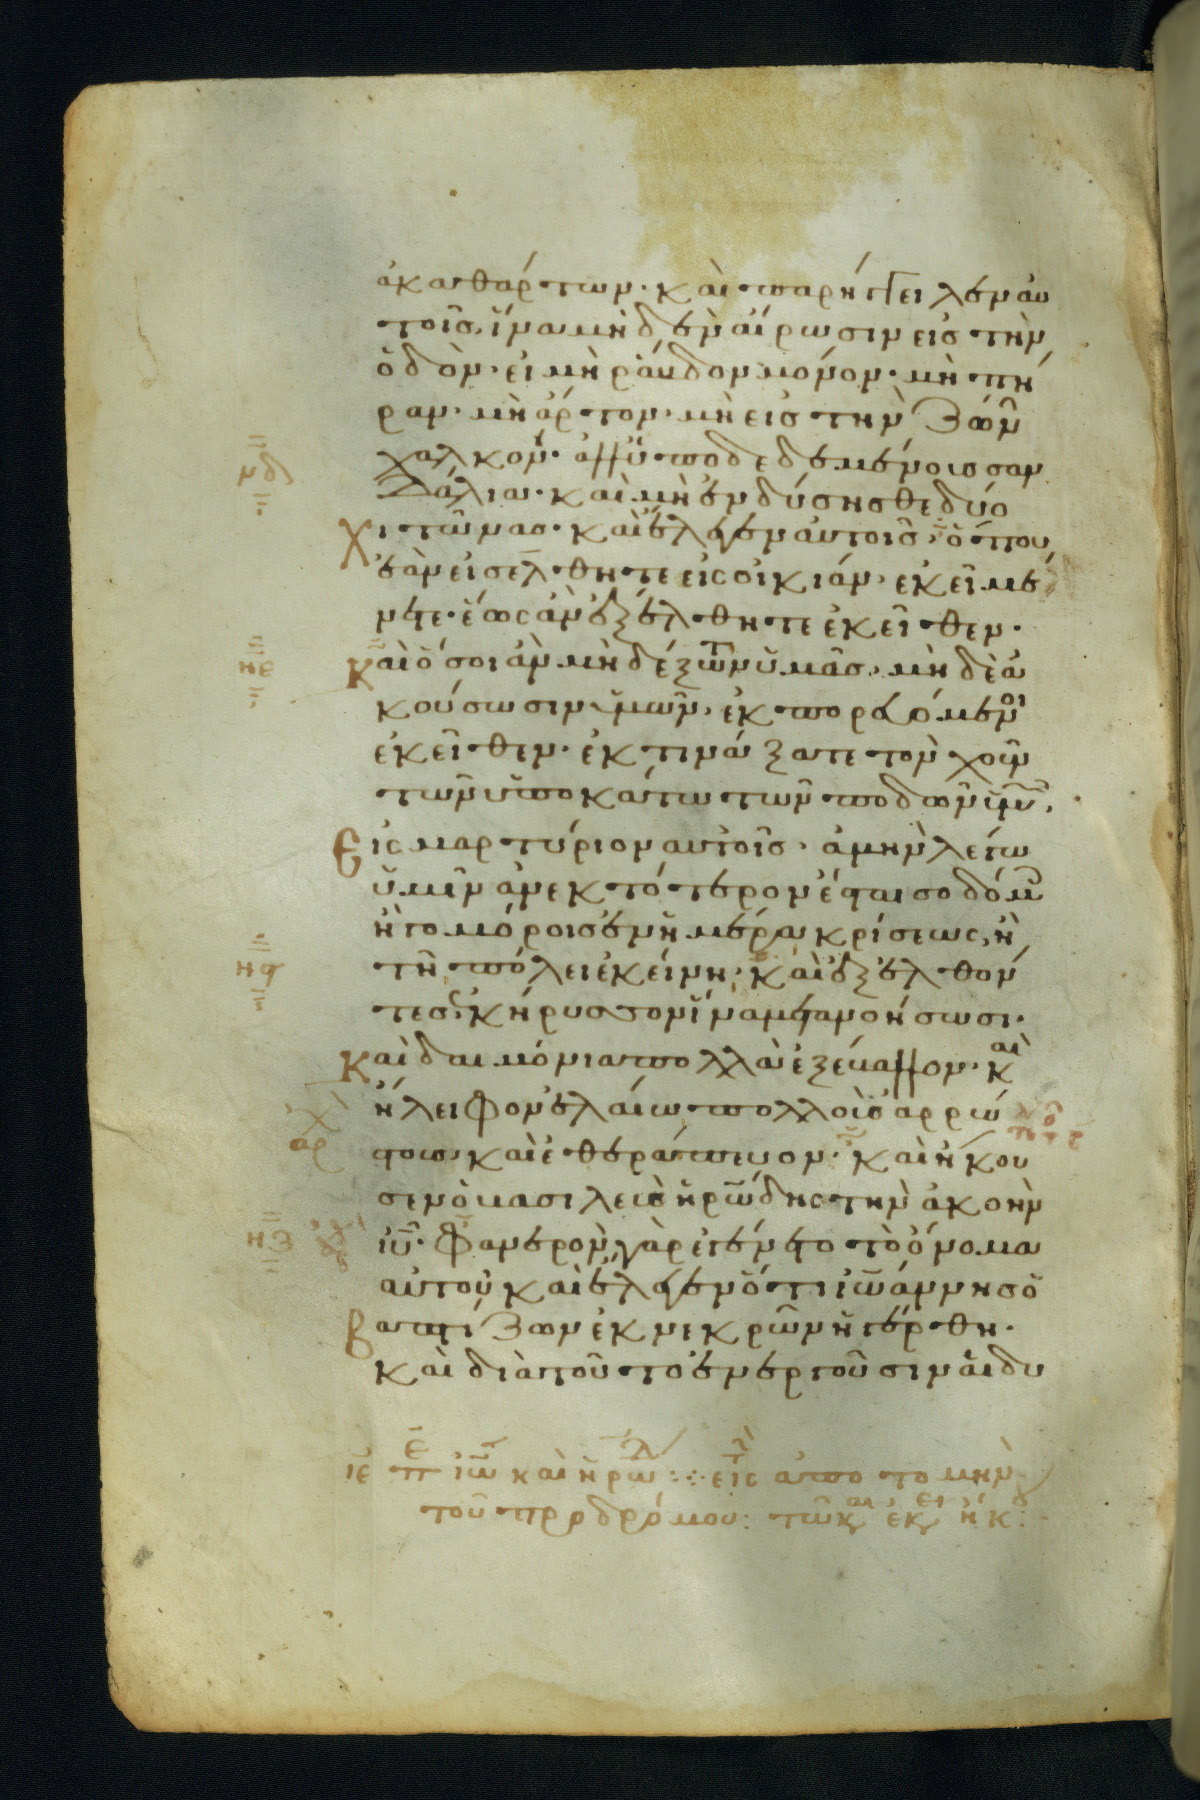 ἀκαθάρτων· καὶ παρήγγειλεν αὐ
τοῖς, ἵνα μηδὲν αἴρωσιν εἰς τὴν
ὁδὸν· εἰ μὴ ράβδον μόνον· μὴ πή
ραν· μὴ ἄρτον· μὴ εἰς τὴν ζών
χαλκόν· ἀλλ' ὑποδεδεμένοις σαν
δάλια· καὶ μὴ ἐνδύσησθε δύο
χιτῶνας· καὶ ἔλεγεν αὐτοῖς· ὅπου
ἐὰν εἰσέλθητε εἰς οἰκίαν, ἐκεῖ μέ
νετε· ἕως ἂν ἐξέλθητε ἐκεῖθεν·
Καὶ ὅσοι ἂν μὴ δέξωνται ὑμᾶς, μὴ δὲ ἀ
κούσωσιν ὑμῶν, ἐκπορευόμενοι
ἐκεῖθεν· ἐκτινάξατε τὸν χοῦν
τῶν ὑποκάτω τῶν ποδῶν ὑμῶν,
Εἰς μαρτύριον αὐτοῖς· ἀμὴν λέγω
ὑμῖν ἀνεκτότερον ἔσται σοδόμ
ἢ γομόροις ἐν ἡμέρα κρίσεως, ἢ
τῇ πόλει ἐκείνη· καὶ ἐξελθόν
τες ἐκήρυσσον ἵνα μετανοήσωσι·
Καὶ δαιμόνια πολλὰ ἐξέβαλλον· καὶ
ἤλειφον ἐλαίω πολλοὺς ἀρρώ
στους καὶ ἐθεράπευον· καὶ ἤκου
σεν ὁ βασιλεὺς ἡρώδης τὴν ἀκοὴν
ιυ· φανερὸν γὰρ ἐγένετο τὸ ὄνομα
αὐτοῦ καὶ ἔλεγεν ὅτι ἰωάννης ὁ
βαπτίζων ἐκ νεκρῶν ἠγέρθη·
καὶ διὰ τοῦτο ἐνεργοῦσιν αἱ δυ
ιε π ιω καὶ ἡρω εἰς ἀποτομὴν
τοῦ προδρόμου: